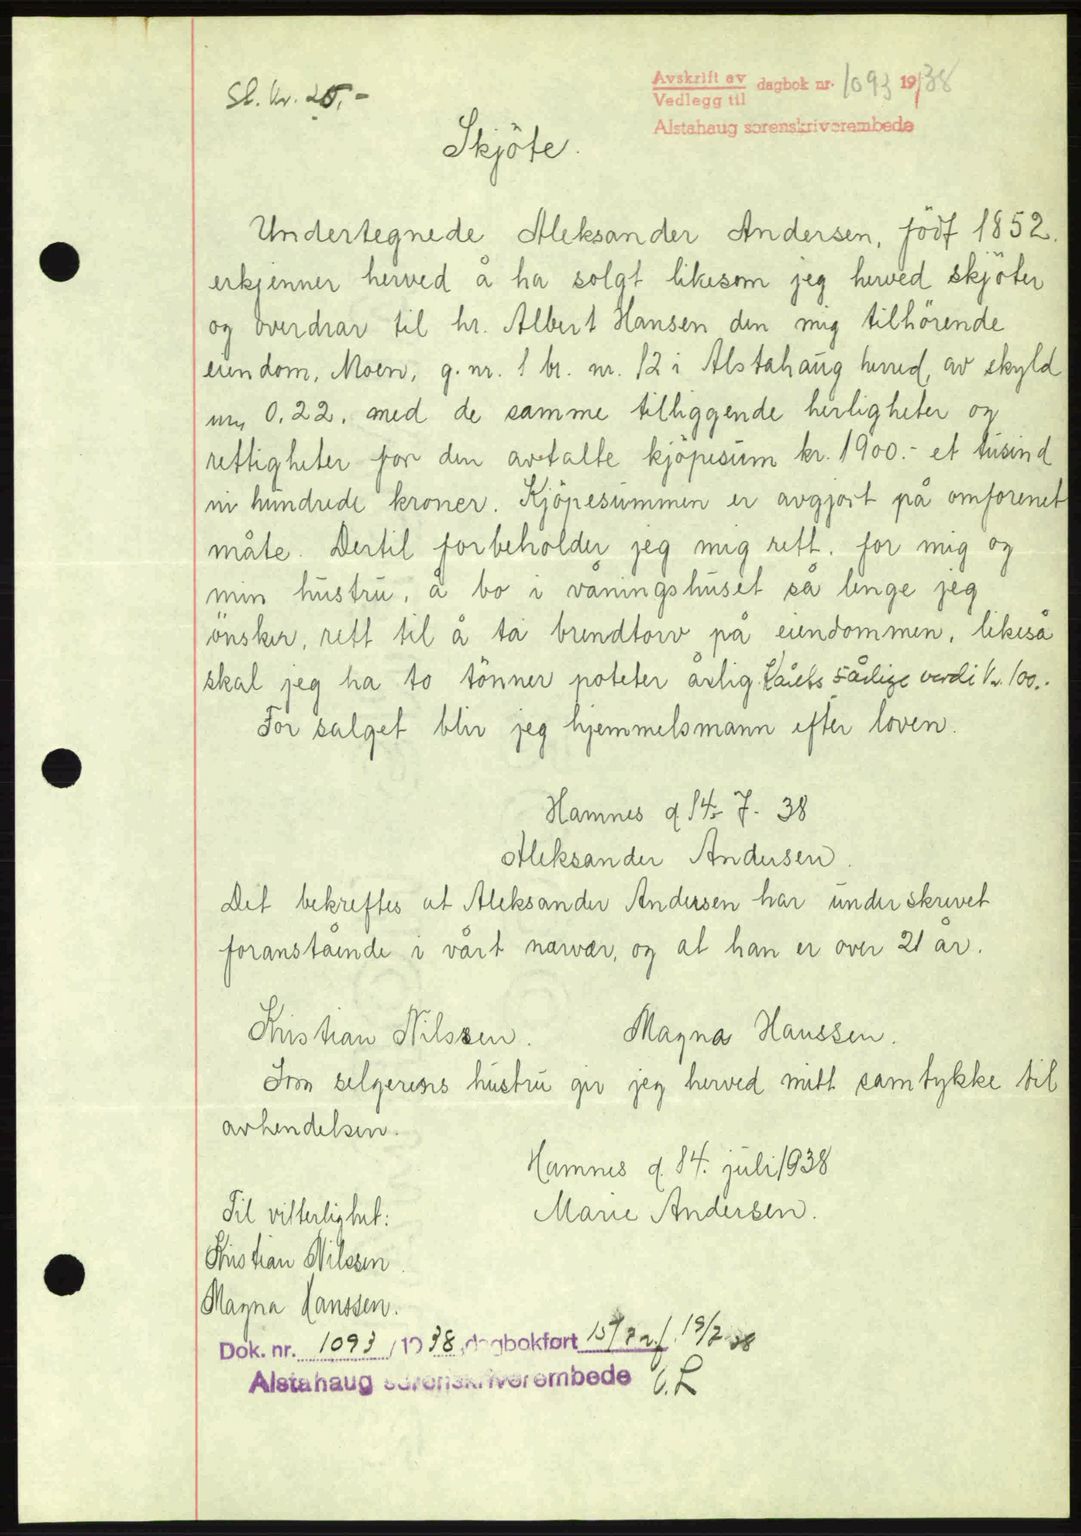 St. kr. 25,-
Avskrift av
Vedlegg til dagbok nr. 1093 1938
Alstahaug sorenskriverembede
Skjöte.
Undertegnede Aleksander Andersen, födt 1852.
erkjenner herved å ha solgt likesom jeg herved skjöter
og overdrar til hr. Albert Hansen den mig tilhörende
eiendom, Moen, g. nr. 1 br. nr. 12 i Alstahaug herred, av skyld
mrk. 0.22. med de samme tilliggende herligheter og
rettigheter for den avtalte kjöpesum kr. 1900.- et tusind
ni hundrede kroner. Kjöpesummen er avgjort på omforenet
måte. Dertil forbeholder jeg mig rett, for mig og
min hustru, å bo i våningshuset så lenge jeg
önsker, rett til å ta brendtorv på eiendommen, likeså
skal jeg ha to tönner poteter årlig. Kårets 5årlige verdi kr. 100.-
For salget blir jeg hjemmelsmann efter loven.
Hamnes d. 14/- 7- 38
Aleksander Andersen.
Det bekreftes at Aleksander Andersen har underskrevet
foranstående i vårt nærvær, og at han er over 21 år.
Kristian Nilssen. Magna Hanssen.
Som selgerens hustru gir jeg herved mitt samtykke til
avhendelsen.
Hamnes d. 14. juli 1938
Til vitterlighet: Marie Andersen.
Kristian Nilssen.
Magna Hanssen.
Dok. nr. 1093 / 1938, dagbokført 15/7 19/7 38
Alstahaug sorenskriverembede